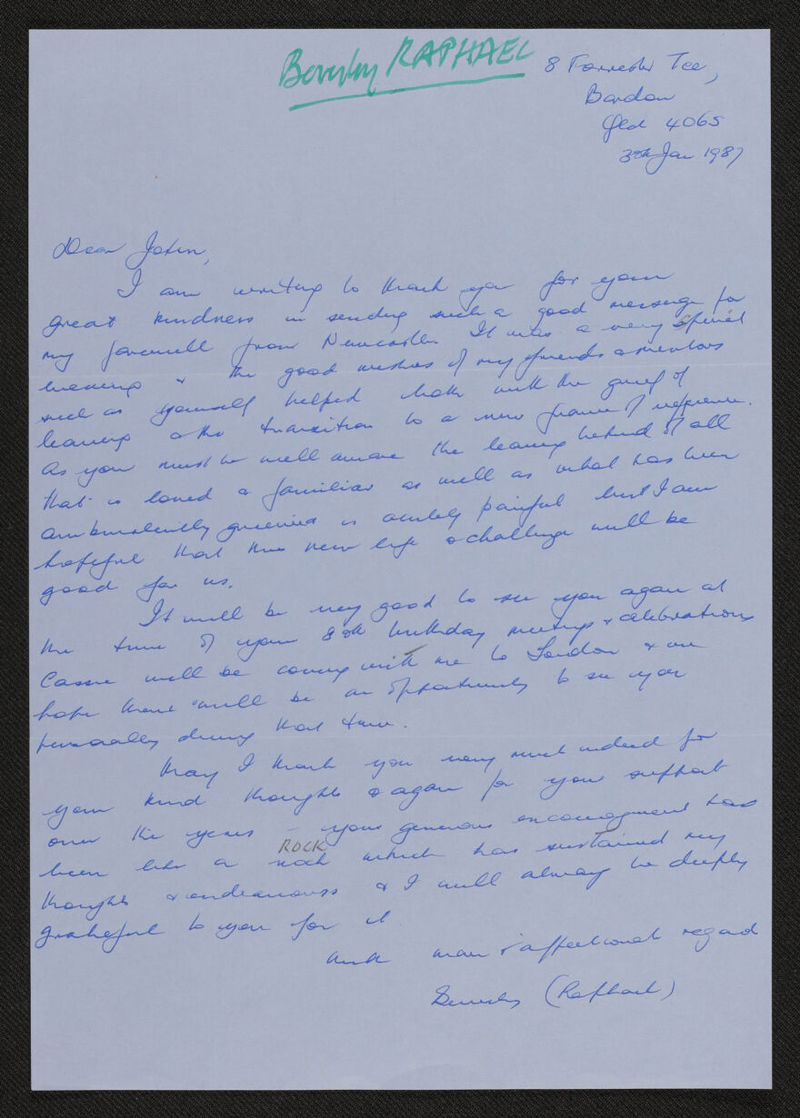 Beverley RAPHAEL
8 Forrester Tce,
Bardon
Qld 4065
30th Jan 1987
Dear John,
I am writing to thank you for your
great kindness in sending such a good message for
my farewell from Newcastle. It was a very special
evening & the good wishes of my friends & mentors
such as yourself helped both with the grief of
leaving & the transition to a new frame of reference.
As you must be well aware the leaving behind of all
that is loved & familiar as well as what has been
ambivalently grieved is acutely painful but I am
hopeful that this new life & challenge will be
good for us.
It will be very good to see you again at
the time of your 80th birthday meetings & celebrations
Cassie will be coming with me to London & we
hope there will be an opportunity to see you
personally during that time.
May I thank you very much indeed for
your kind thoughts & again for your support
over the years – your generous encouragement has
ROCK
been like a rock which has sustained my
thoughts & endeavours & I will always be deeply
grateful to you for it
with warm & affectionate regard
Beverley (Raphael)